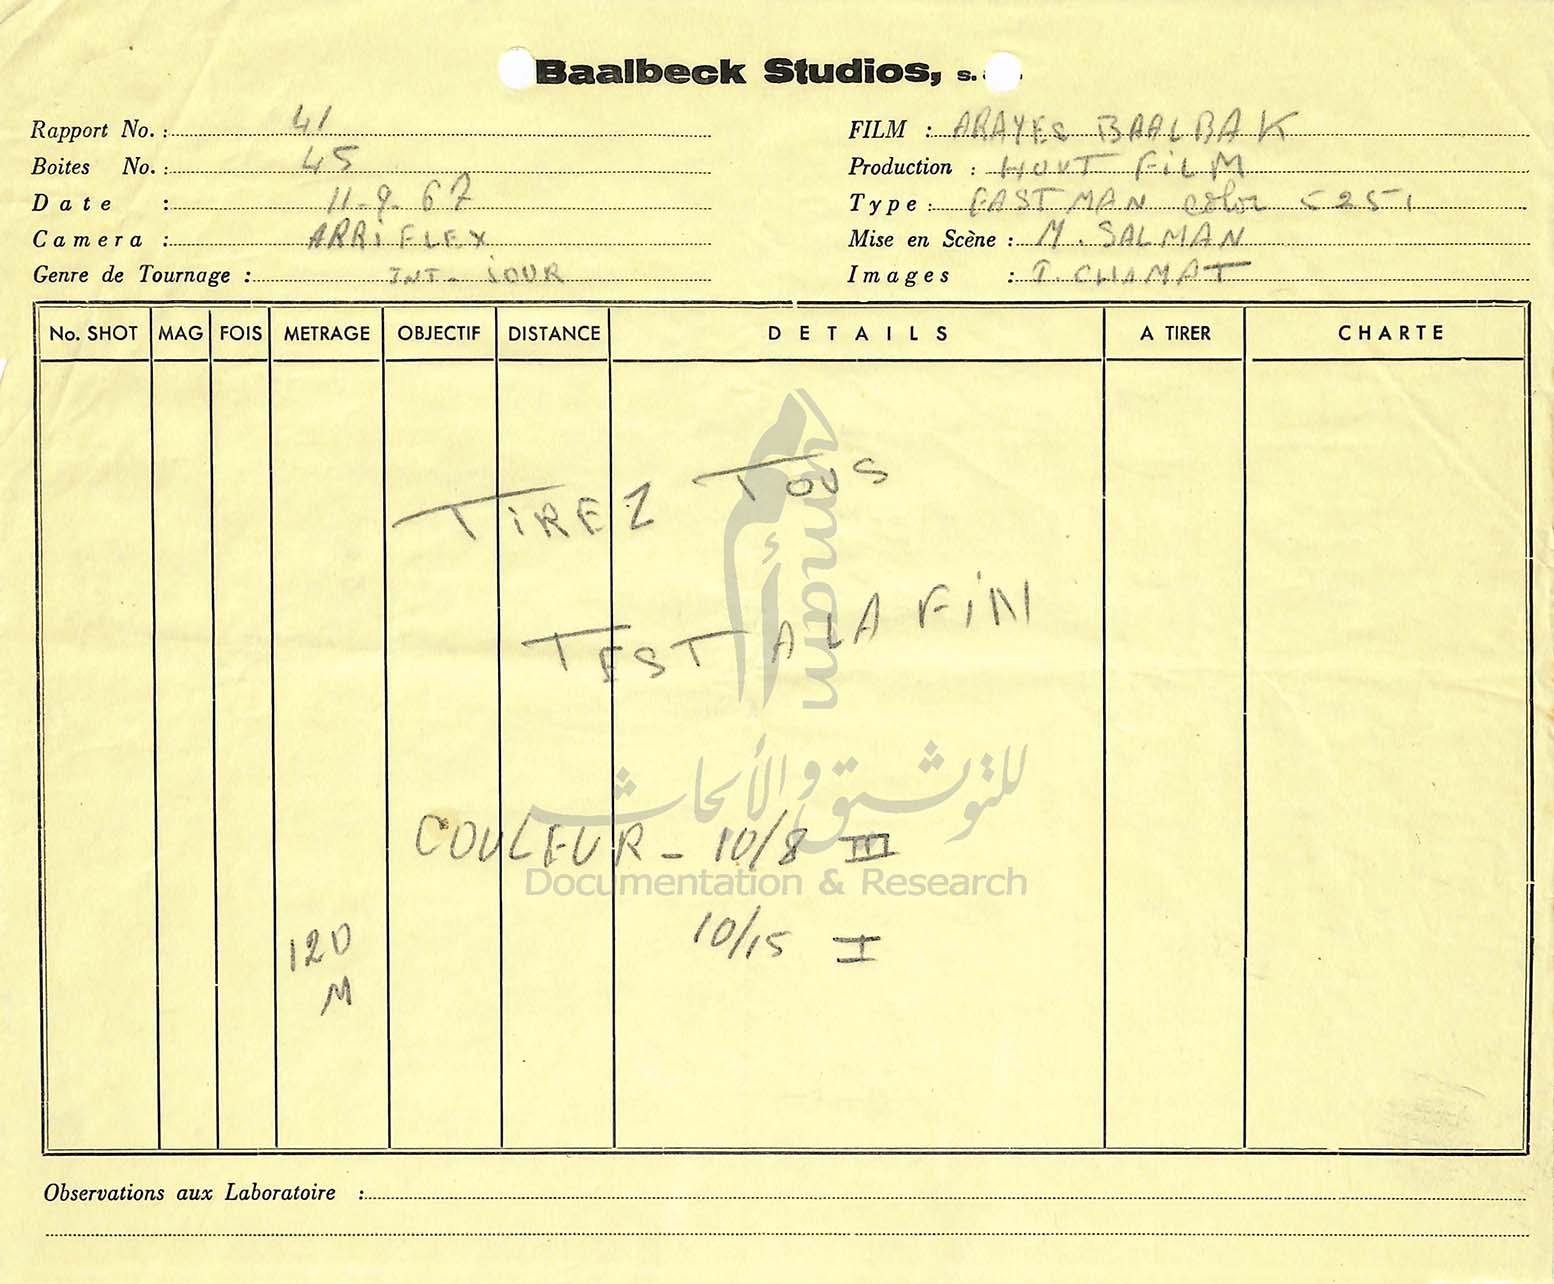 Baalbeck Studios, s.
Rapport No. : 41
Boites No. : 45
Date : 11-9-67
Camera : ARRIFLEX
Genre de Tournage : INT- JOUR
FILM : ARAYES BAALBAK
Production : HOUT FILM
Type : EASTMAN color 5251
Mise en Scène : M. SALMAN
Images : I. CHAMAT
No. SHOT MAG FOIS METRAGE OBJECTIF DISTANCE DETAILS A TIRER CHARTE
TIREZ TOUS
TEST A LA FIN
COULEUR - 10/8 III
10/15 I
120
M
umam
أمم
للتوثيق والأبحاث
Documentation & Research
Observations aux Laboratoire :